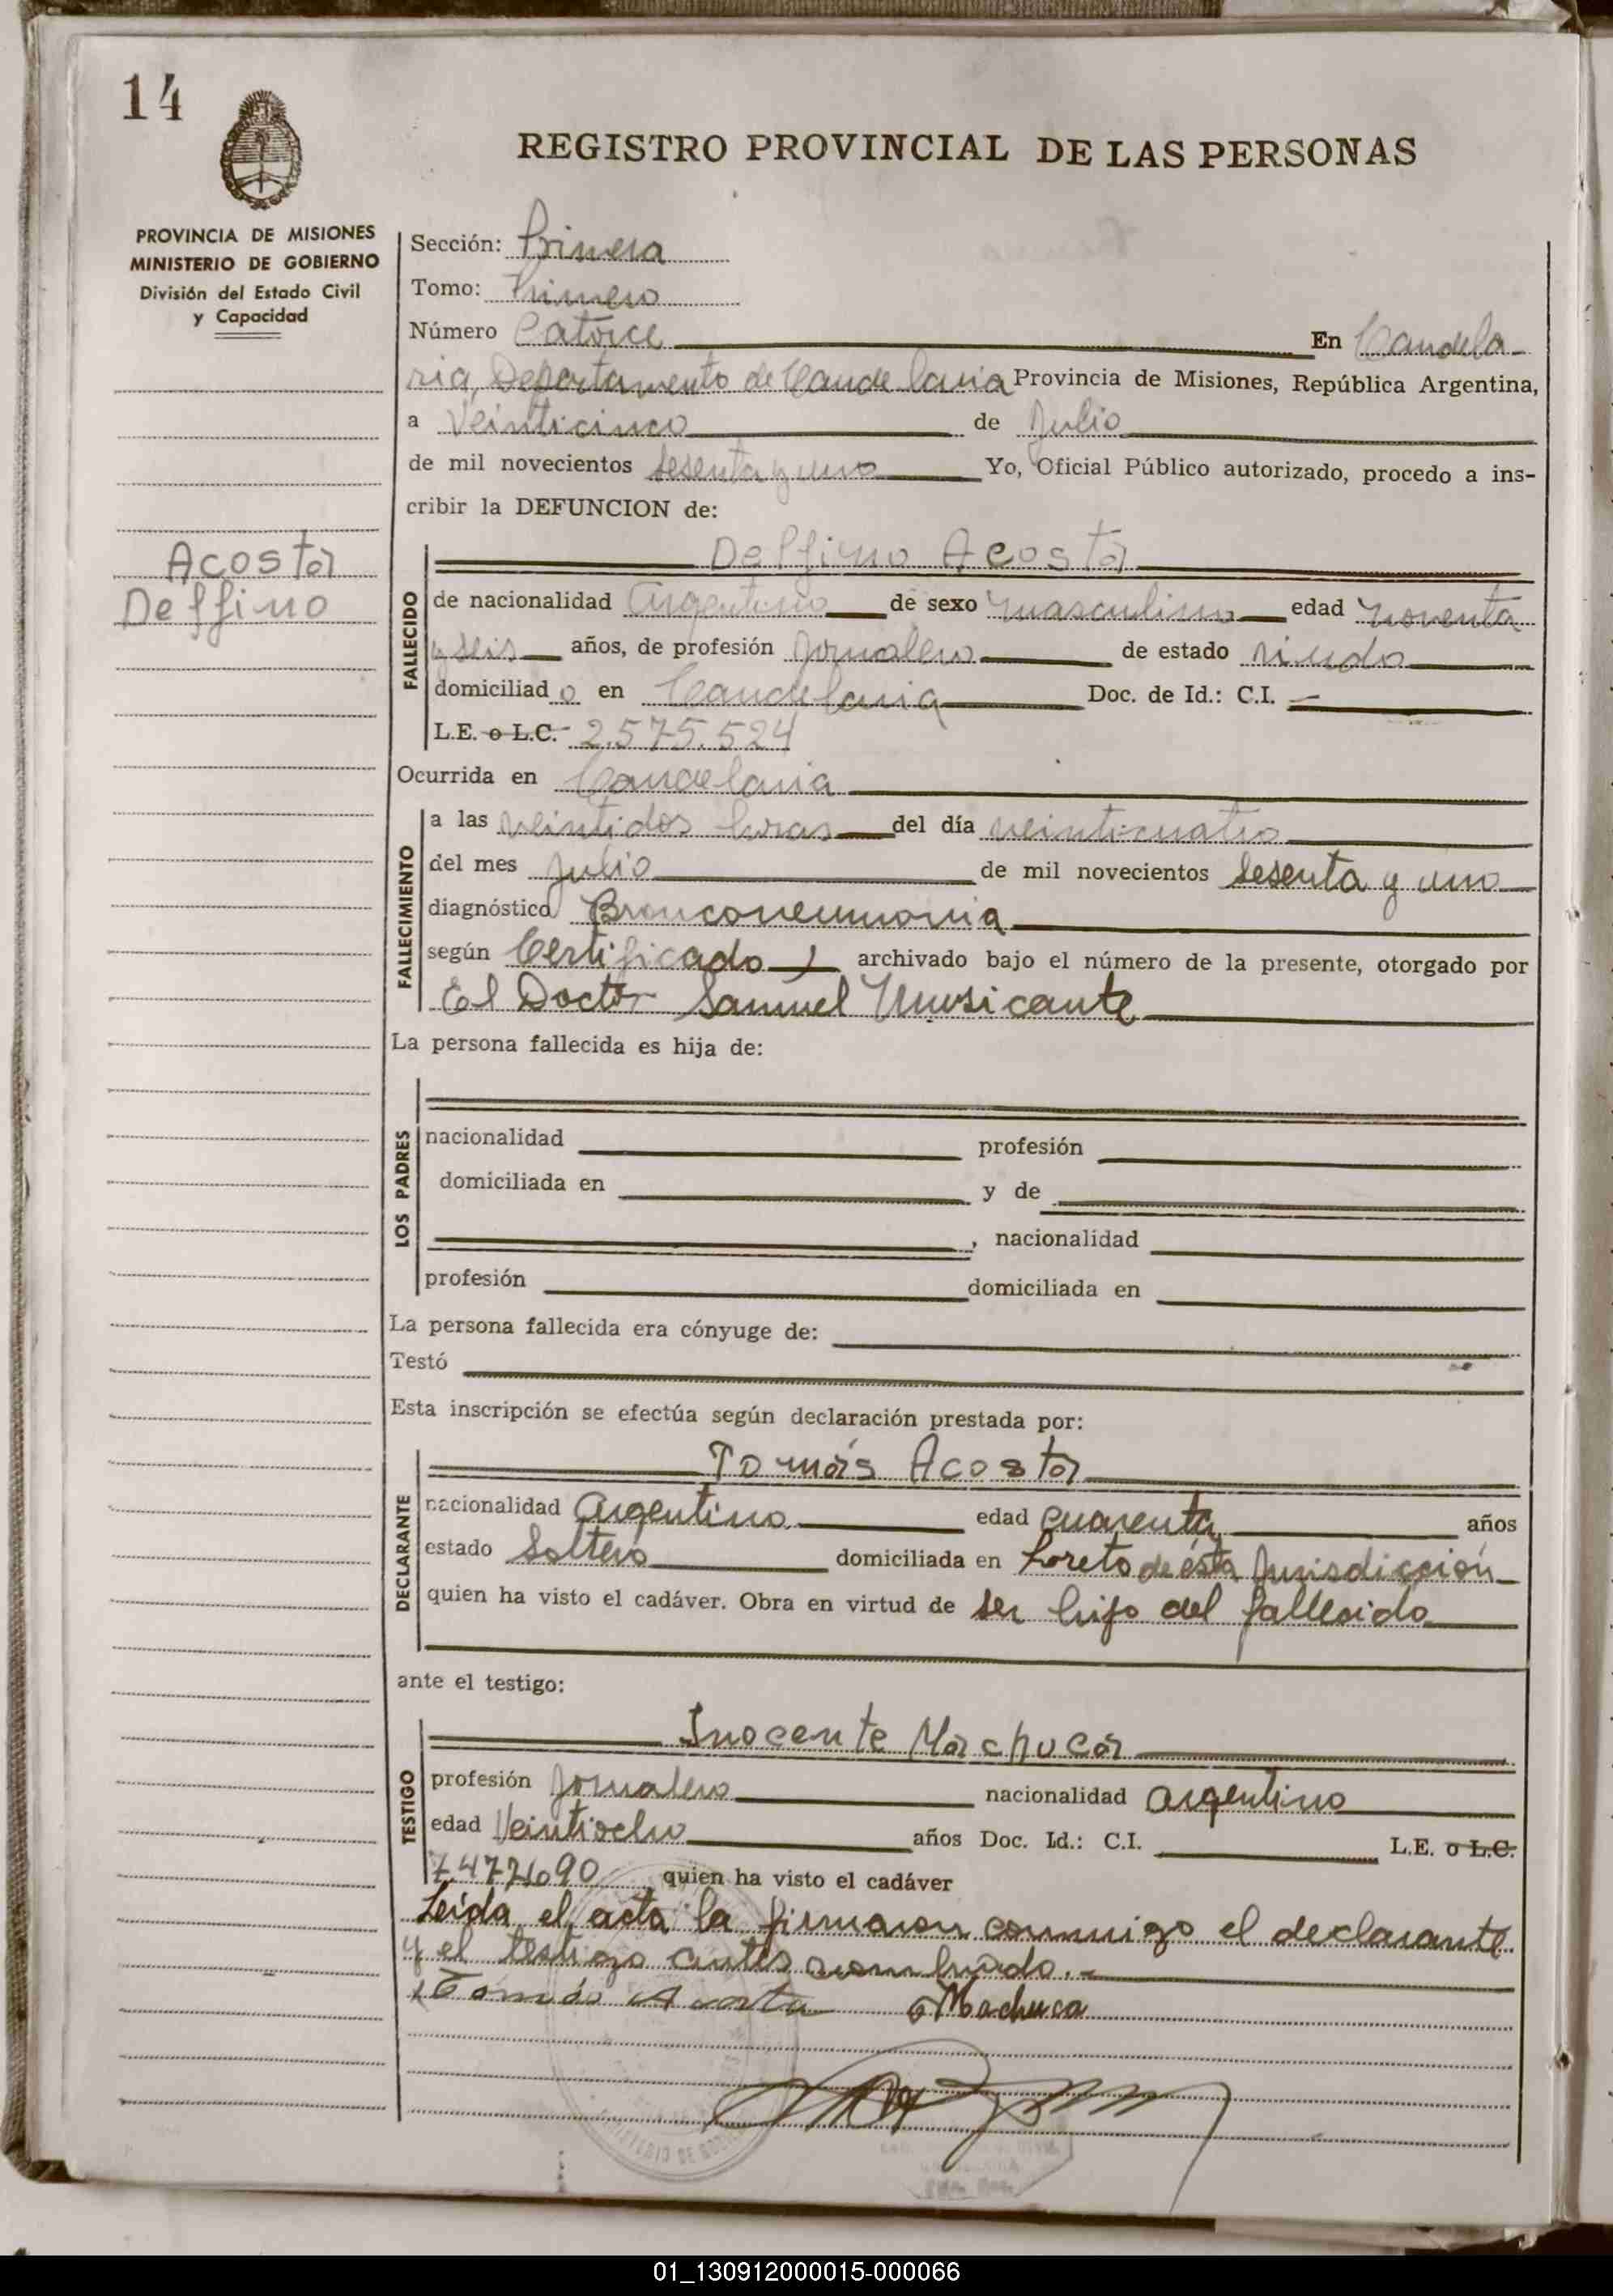 14
REGISTRO PROVINCIAL DE LAS PERSONAS
PROVINCIA DE MISIONES
MINISTERIO DE GOBIERNO
División del Estado Civil
y Capacidad
Acosta
Delfino
Sección: Primera
Tomo: Primero
Número Catorce En Candela-
ria, Departamento de Candelaria Provincia de Misiones, República Argentina,
a Veinticinco de Julio
de mil novecientos sesenta y uno Yo, Oficial Público autorizado, procedo a ins-
cribir la DEFUNCION de:
Delfino Acosta
FALLECIDO
de nacionalidad Argentino de sexo masculino edad noventa
y seis años, de profesión Jornalero de estado viudo
domiciliad o en Candelaria Doc. de Id.: C.I. —
L.E. o L.C. 2.575.524
Ocurrida en Candelaria
FALLECIMIENTO
a las veintidos horas del día veinticuatro
del mes Julio de mil novecientos sesenta y uno
diagnóstico Bronconeumonia
según Certificado archivado bajo el número de la presente, otorgado por
El Doctor Samuel Musicante
La persona fallecida es hija de:
LOS PADRES
nacionalidad profesión
domiciliada en y de
, nacionalidad
profesión domiciliada en
La persona fallecida era cónyuge de:
Testó
Esta inscripción se efectúa según declaración prestada por:
Tomás Acosta
DECLARANTE
nacionalidad Argentino edad cuarenta años
estado Soltero domiciliada en Loreto de ésta Jurisdicción
quien ha visto el cadáver. Obra en virtud de ser hijo del fallecido
ante el testigo:
Inocente Machuca
TESTIGO
profesión Jornalero nacionalidad argentino
edad Veintiocho años Doc. Id.: C.I. L.E. o L.C.
quien ha visto el cadáver
Leida el acta la firmaron conmigo el declarante
y el testigo antes nombrado.-
Tomás Acosta Machuca
01_130912000015-000066